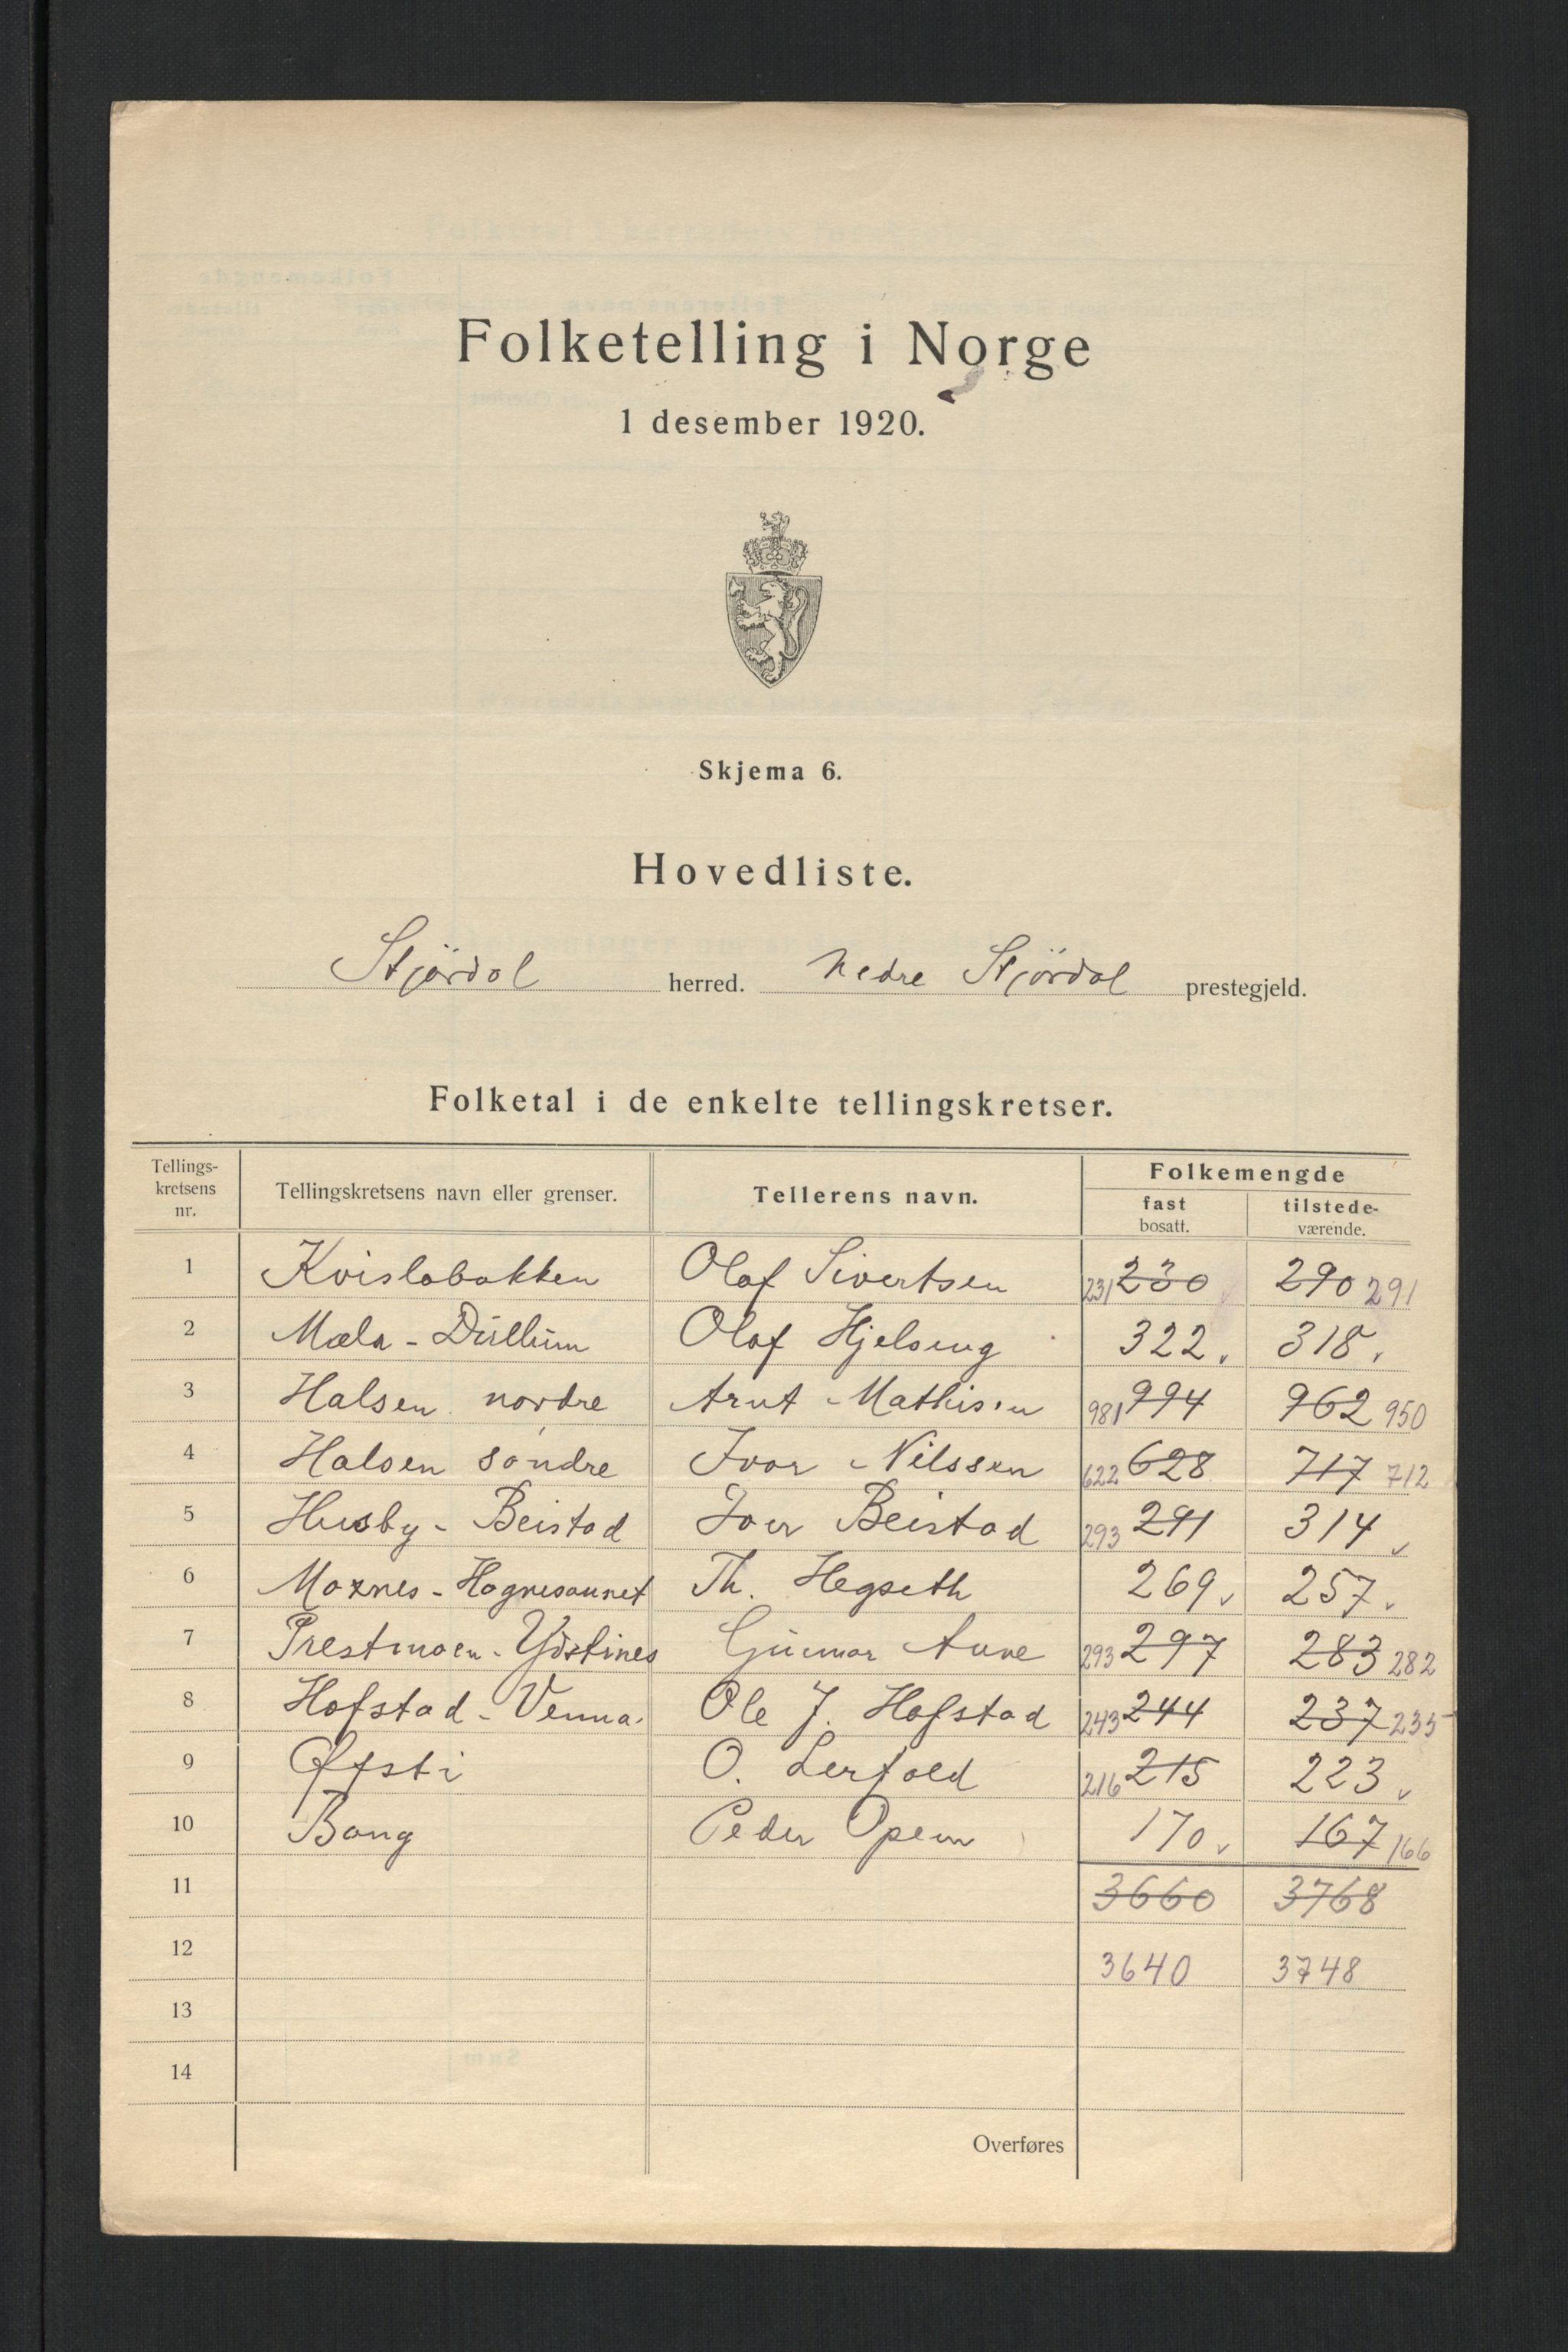 Folketelling i Norge
1 desember 1920.
Skjema 6.
Hovedliste.
Stjördal herred. Nedre Stjördal prestegjeld.
Folketal i de enkelte tellingskretser.
Tellings-kretsens nr. Tellingskretsens navn eller grenser. Tellerens navn. Folkemengde
fast bosatt. tilstede-værende.
1 Kvislabakken Olaf Sivertsen 231 230 290 291
2 Mæla - Dúllúm Olaf Hjelseng 322. 318.
3 Halsen nordre Arnt Mathisen 981 994 962 950
4 Halsen söndre Ivar Nilssen 622 628 717 712
5 Husby - Beistad Iver Beistad 293 291 314
6 Moxnes - Hognesaunet Th. Hegseth 269 257
7 Prestmoen - Ydstines Gúnnar Aune 293 297 283 282
8 Hofstad - Venna. Ole J. Hofstad 243 244 237 235
9 Øfsti O. Lerfald 216 215 223
10 Bang Peder Opem 170 167 166
11 3660 3768
12 3640 3748
13
14
Overføres